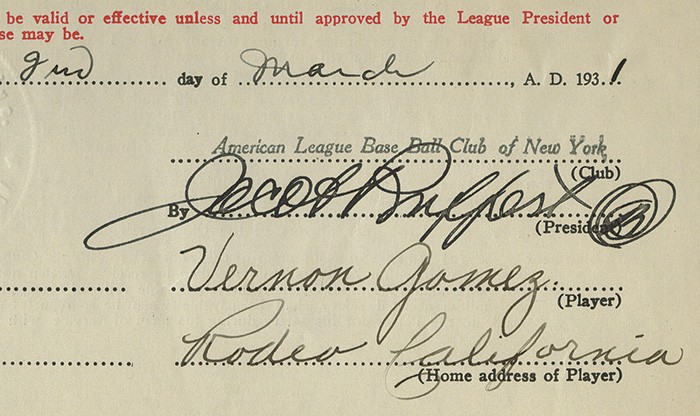 be valid or effective unless and until approved by the League President or
se may be.
2nd day of March, A. D. 1931
American League Base Ball Club of New York
(Club)
By Jacob Ruppert
(President)
Vernon Gomez.
(Player)
Rodeo California
(Home address of Player)